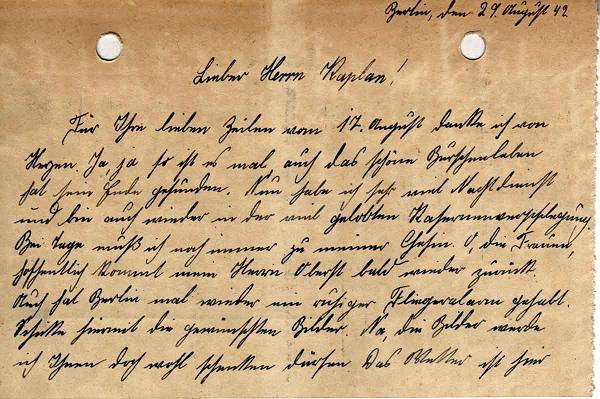 Berlin, den 29. August 42
Lieber Herrn Kaplan!
Für Ihre lieben Zeilen vom 17. August danke ich von
Herzen. Ja, ja so ist es mal, auch das schöne Burschenleben
hat sein Ende gefunden. Nun habe ich sehr viel Nachtdienst
und bin auch wieder in der viel gelobten Kasernenverpflegung.
Bei Tage muß ich noch immer zu meiner Chefin. O, die Frauen,
hoffentlich kommt mein Herrn Oberst bald wieder zurück.
Auch hat Berlin mal wieder ein ruhiger Fliegeralarm gehabt.
Schicke hiermit die gewünschten Bilder. Na, die Bilder werde
ich Ihnen doch wohl schenken dürfen Das Wetter ist hier